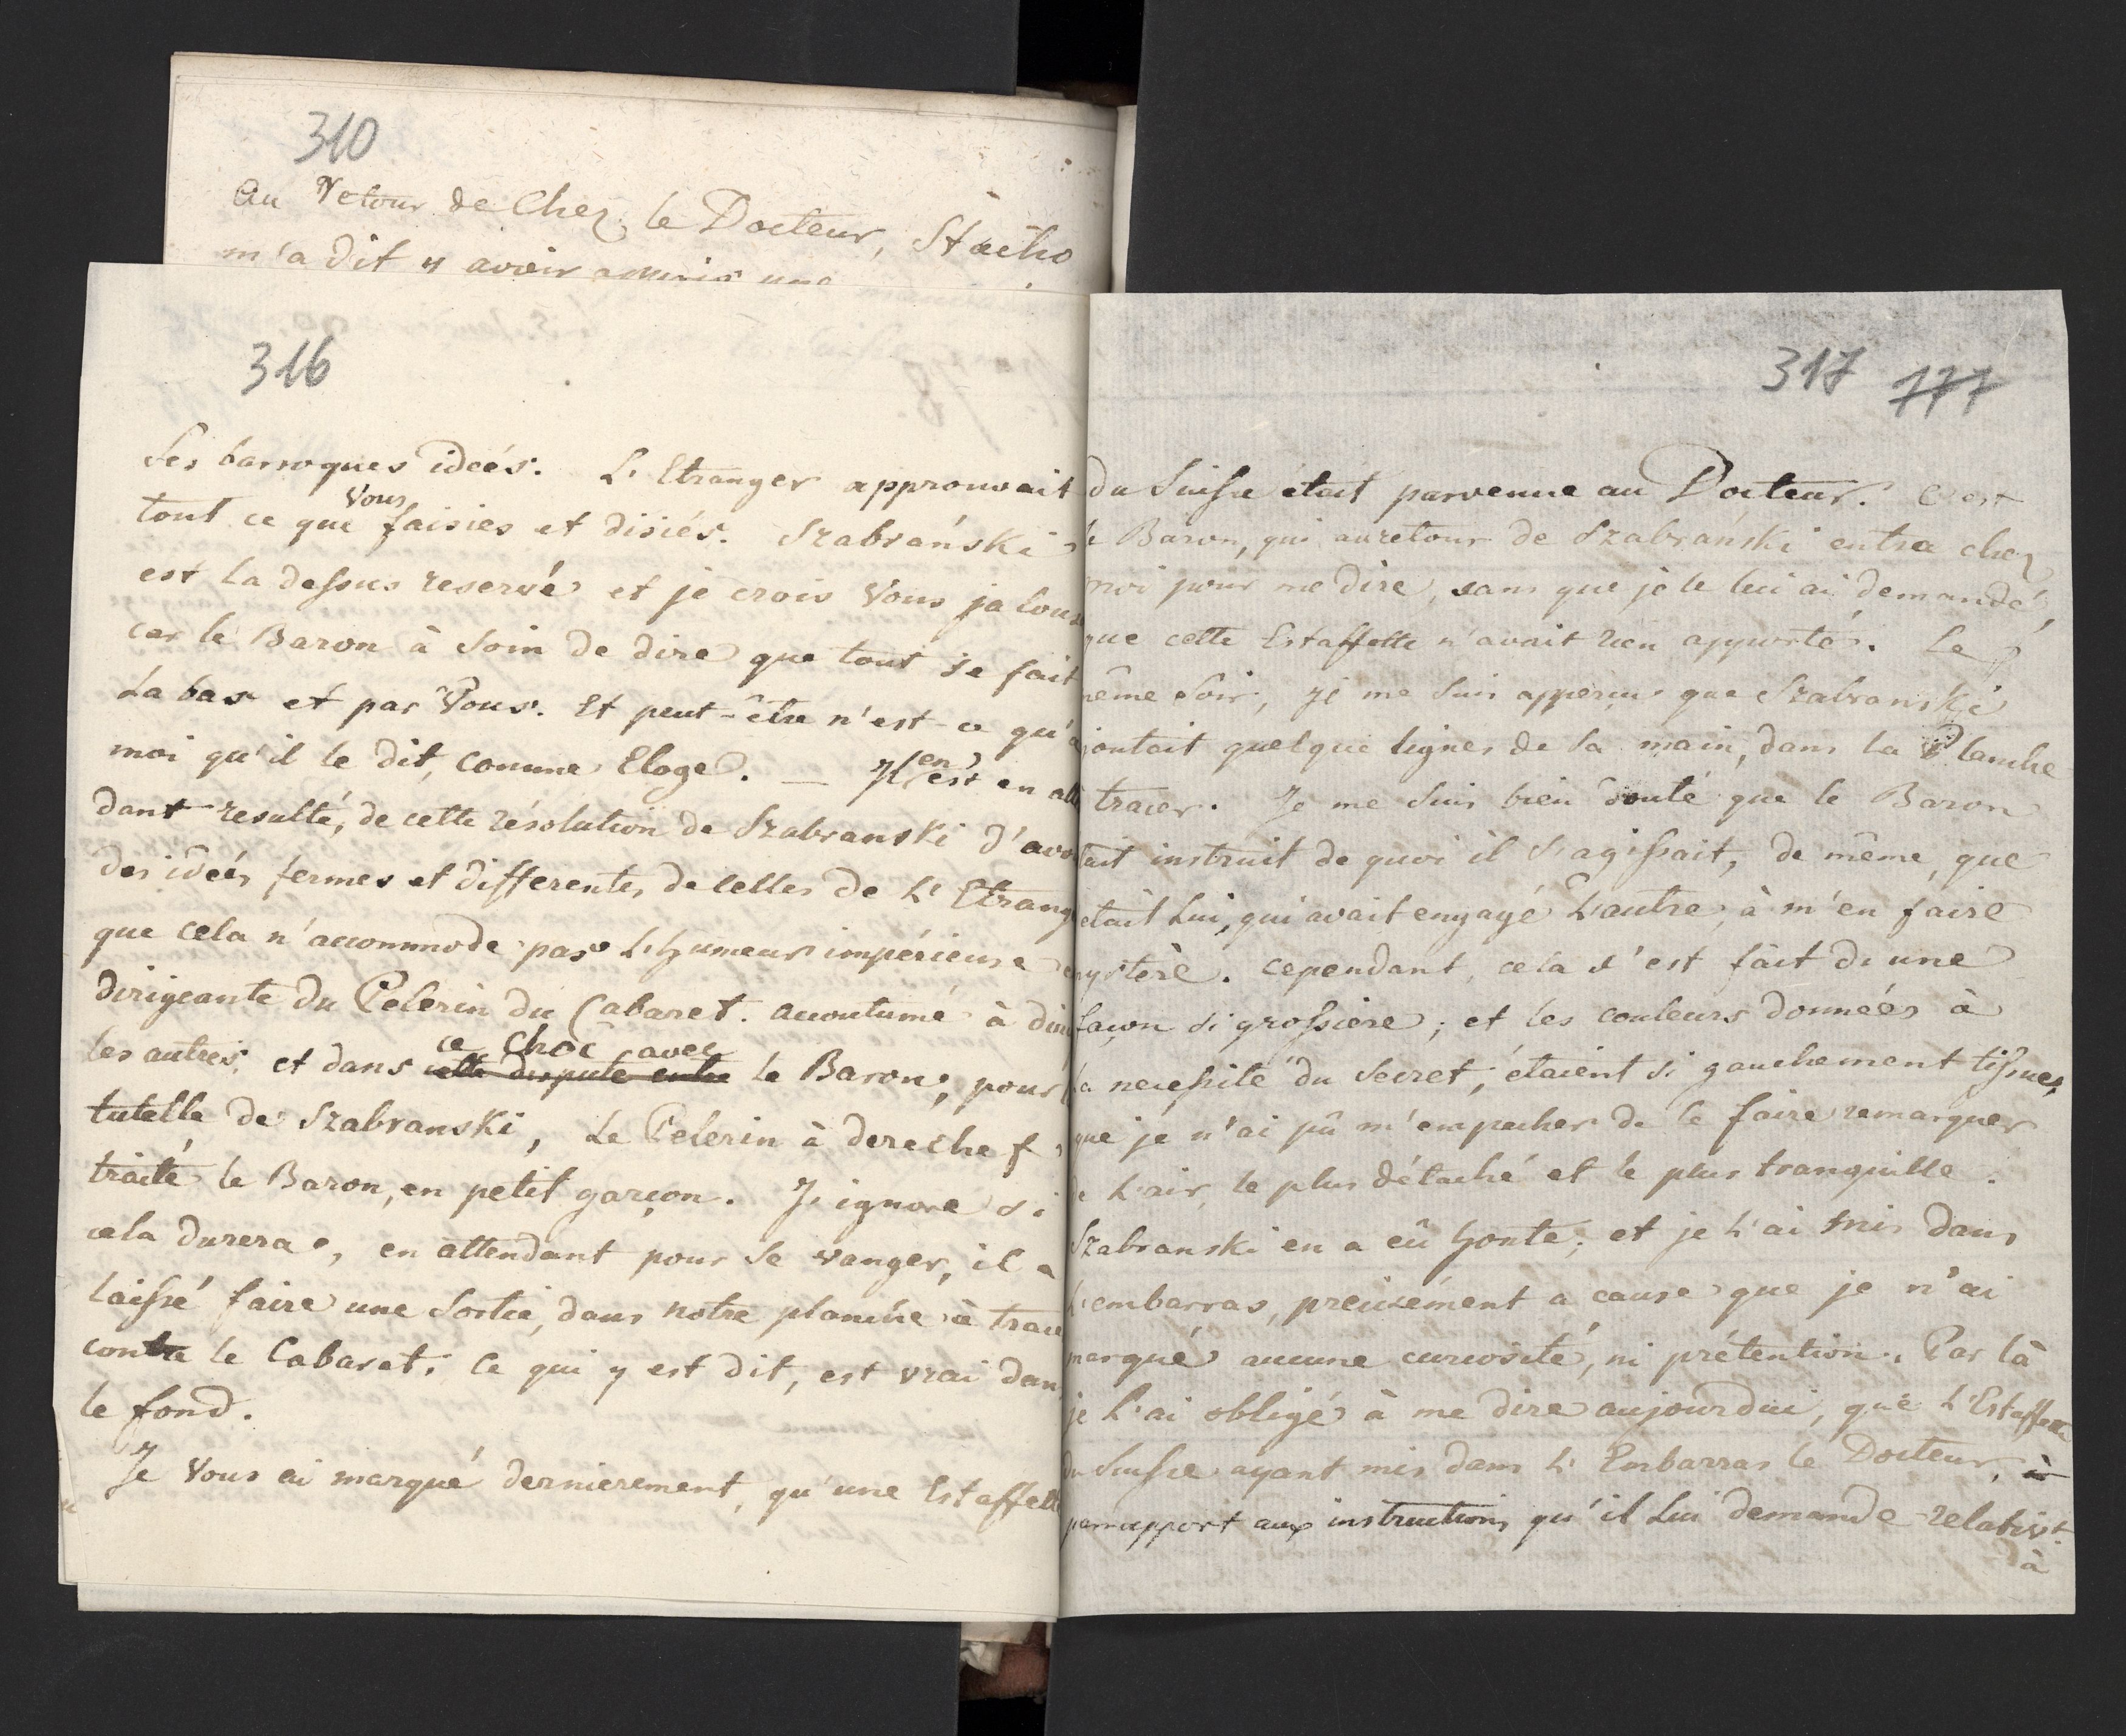 310
Au Retour de Chez le Docteur, Stacho
m'a dit y avoir appris une
316
Ses barroques ideés. L'Etranger approuvait
Vous
tout ce que faisies et disiés. Szabrański
est la dessus reservé et je crois Vous jalous
car le Baron à Soin de dire que tout se fait
La bas et par Vous. Et peut-être n'est-ce qu'à
moi qu'il le dit, comme Eloge. — Il en est en att
dant resulté, de cette résolution de Szabranski d'avo
des ideés fermes et differentes de celles de L'Etrang
que cela n'accommode pas L'humeur impérieuse
dirigeante du Pelerin du Cabaret. accoutumé à diri
ce Choc avec
les autres, et dans cette dispute entre le Baron, pour
tutelle de Szabranski, Le Pelerin à derechef
traité le Baron, en petit garçon. J'ignore si
cela durera, en attendant pour se vanger, il a
laissé faire une Sortie, dans notre planche à trac
contre le Cabaret. Ce qui y est dit, est vrai dan
le fond.
Je Vous ai marqué dernierement, qu'une Estaffett
317 177
du Suisse était parvenue au Docteur. C'est
le Baron, qui au retour de Szabrański entra chez
moi pour me dire, sans que je le lui ai demandé,
que cette Estaffette n'avait rien apporté. Le
même Soir, je me suis apperçu que Szabranski
joutait quelque lignes de sa main, dans la Planche
tracer. Je me suis bien douté que le Baron
tait instruit de quoi il s'agissait, de même, que
etait Lui, qui avait engagé L'autre, à m'en faire
mystère. cependant, cela s'est fait d'une
façon si grossiere, et les couleurs données à
la necessité du Secret, étaient si gauchement tissues,
que je n'ai pû m'empecher de le faire remarquer
de L'air le plus détaché et le plus tranquille.
Szabranski en a eû honte; et je L'ai mis dans
L'embarras, precisément a cause que je n'ai
marqué aucune curiosité, ni prétention. Par là
je L'ai obligé à me dire aujourdui, que L'Estaffette
du Suisse ayant mis dans L'Embarras le Docteur, à
par rapport aux instructions qu'il Lui demande relativt
à